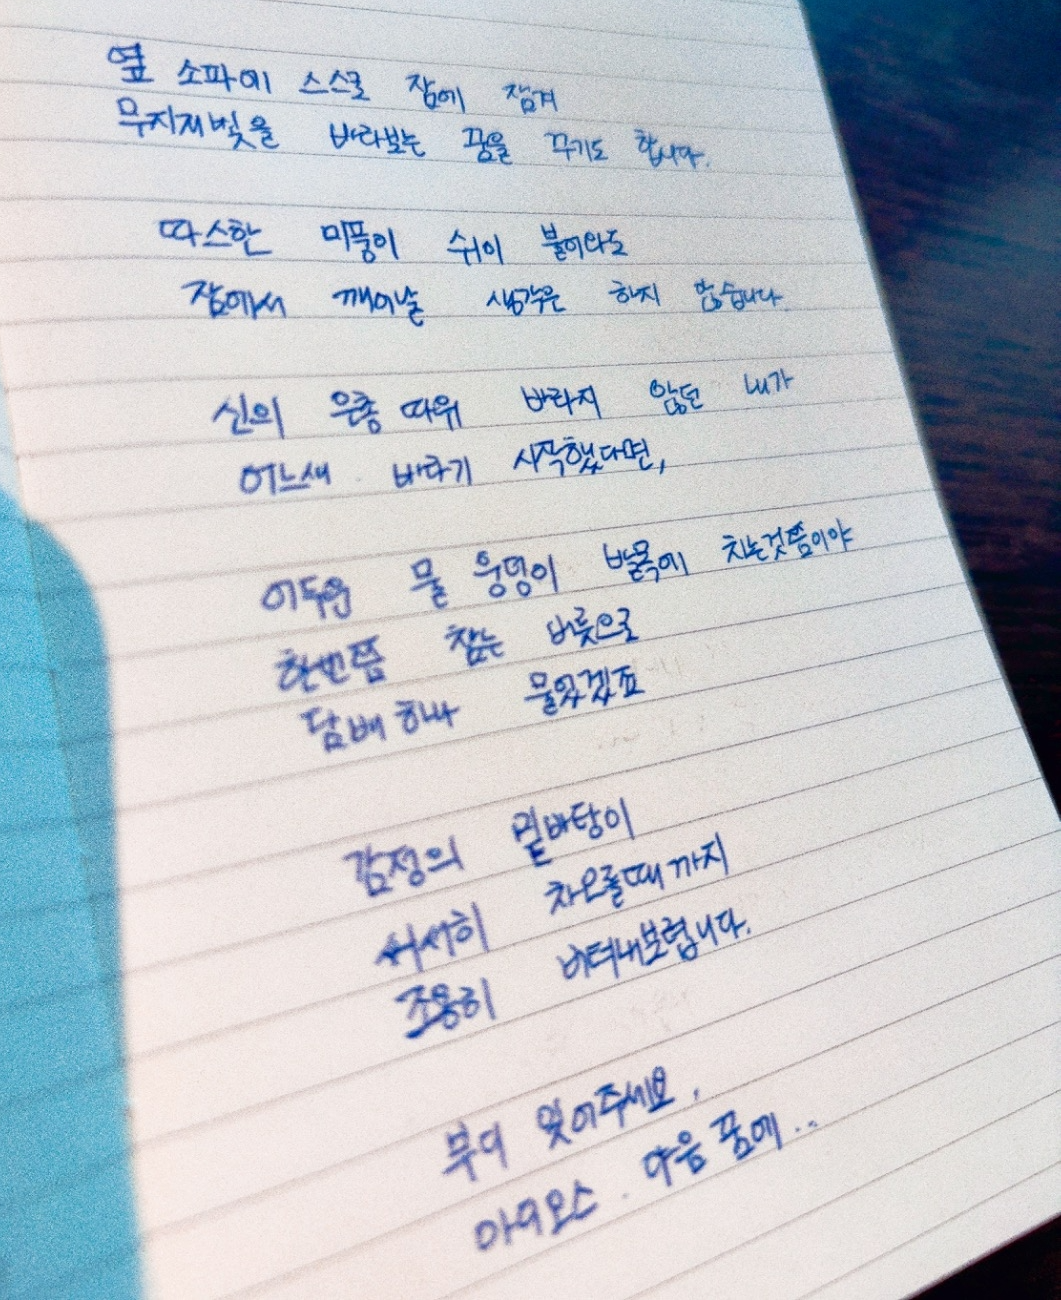 옆 소파에 스스로 잠에 잠겨
무지개빛을 바라보는 꿈을 꾸기도 합니다.
따스한 미풍이 쉬이 불어와도
잠에서 깨어날 생각은 하지 않습니다.
신의 은총 따위 바라지 않던 내가
어느새 바라기 시작했다면,
어두운 물 웅덩이 발목에 치는것쯤이야
한번쯤 참는 버릇으로
담배 하나 물었겠죠
감정의 밑바탕이
서서히 차오를때 까지
조용히 버텨내보렵니다.
부디 잊어주세요,
아디오스. 마음 품에..